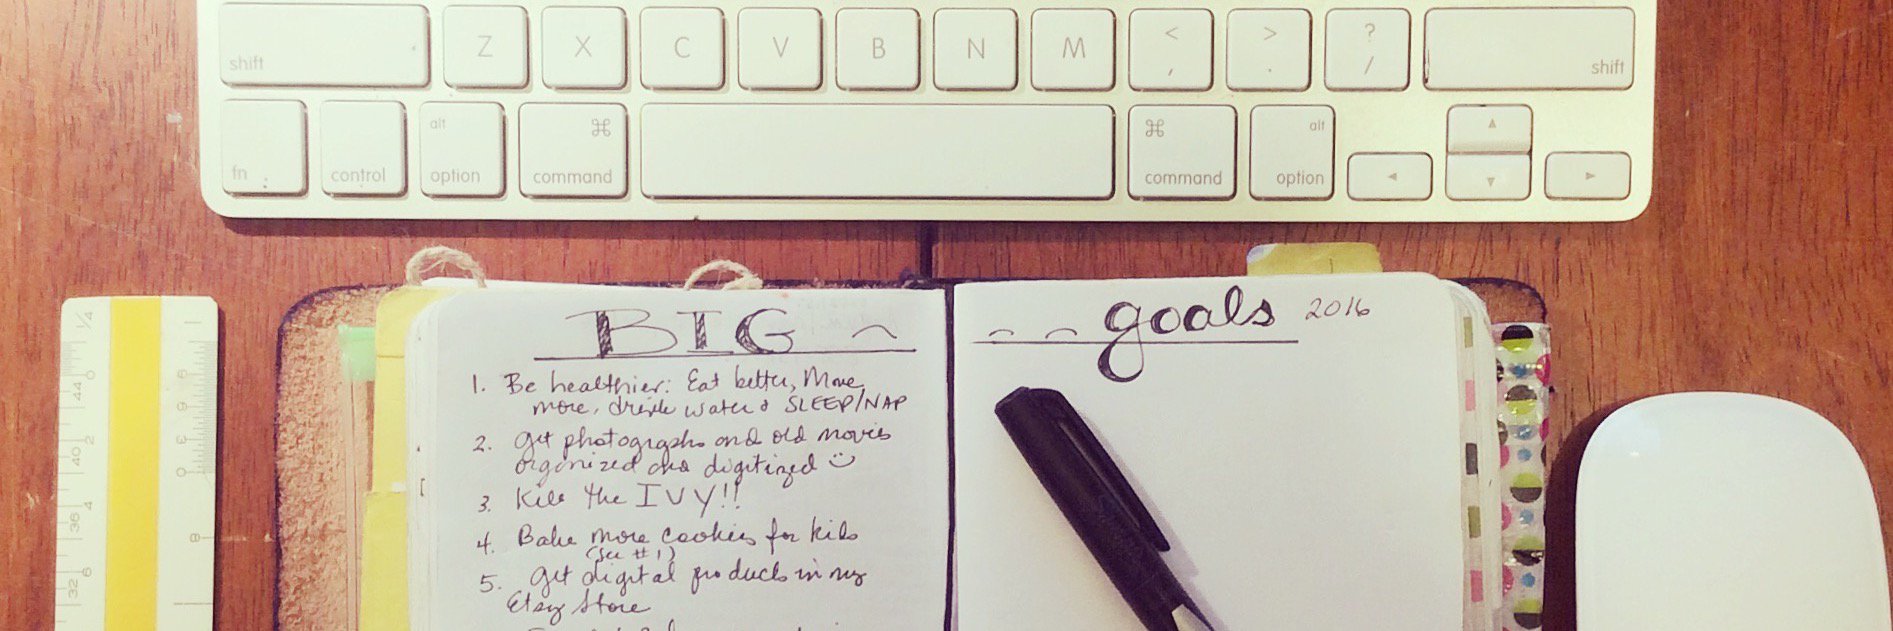 shift Z X C V B N M < , > . ? / shift
fn control alt option ⌘ command ⌘ command alt option ◄ ▲ ▼ ►
BIG goals 2016
1. Be healthier: Eat better, Move
more, drink water & SLEEP/NAP
2. Get photographs and old movies
organized and digitized ☺
3. Kill the IVY!!
4. Bake more cookies for kids
(See #1)
5. Get digital products in my
Etsy Store
1/4
44 0
40 2
36 4
32 6
9
6
3
0
8